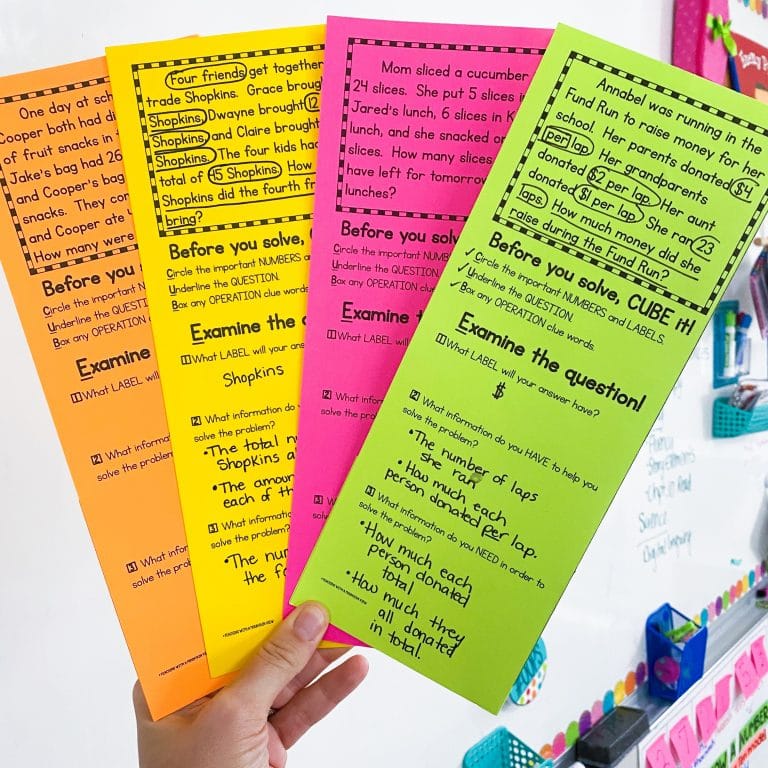 One day at sch
Cooper both had di
of fruit snacks in t
Jake's bag had 26
and Cooper's bag
snacks. They com
and Cooper ate
How many were
Before you
Circle the important
Underline the QUESTION.
Box any OPERATION
Examine
1 What LABEL will
2 What informa
solve the problem?
3 What info
solve the pro
Four friends get together
trade Shopkins. Grace broug
Shopkins, Dwayne brought 12
Shopkins, and Claire brought
Shopkins. The four kids had
total of 45 Shopkins. How
Shopkins did the fourth fr
bring?
Before you solve,
Circle the important NUMBERS
Underline the QUESTION.
Box any OPERATION clue
Examine the
1 What LABEL will your answ
Shopkins
2 What information do
solve the problem?
•The total nu
Shopkins a
•The amou
each of th
3 What informatio
solve the problem?
•The num
the fo
Mom sliced a cucumber
24 slices. She put 5 slices i
Jared's lunch, 6 slices in K
lunch, and she snacked on
slices. How many slices
have left for tomorrow
lunches?
Before you solv
Circle the important NUM
Underline the QUESTION.
Box any OPERATION clue
Examine t
1 What LABEL will you
2 What informat
solve the problem
3 What
solve the
Annabel was running in the
Fund Run to raise money for her
school. Her parents donated $4
per lap. Her grandparents
donated $2 per lap. Her aunt
donated $1 per lap. She ran 23
laps. How much money did she
raise during the Fund Run?
Before you solve, CUBE it!
✓ Circle the important NUMBERS and LABELS.
✓ Underline the QUESTION.
✓ Box any OPERATION clue words.
Examine the question!
1 What LABEL will your answer have?
$
2 What information do you HAVE to help you
solve the problem?
•The number of laps
she ran
•How much each
person donated per lap.
3 What information do you NEED in order to
solve the problem?
•How much each
person donated
total
•How much they
all donated
in total.
Fluency
Story Elements
Science